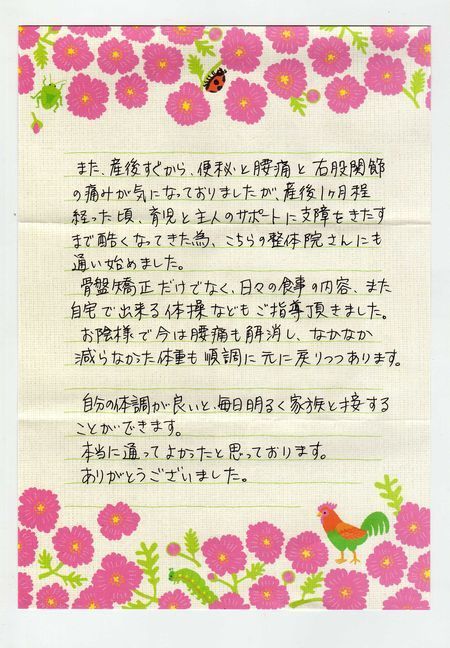 また、産後すぐから、便秘と腰痛と右股関節
の痛みが気になっておりましたが、産後1ヶ月程
経った頃、育児と主人のサポートに支障をきたす
まで酷くなってきた為、こちらの整体院さんにも
通い始めました。
骨盤矯正だけでなく、日々の食事の内容、また
自宅で出来る体操などもご指導頂きました。
お陰様で今は腰痛も解消し、なかなか
減らなかった体重も順調に元に戻りつつあります。
自分の体調が良いと、毎日明るく家族と接する
ことができます。
本当に通ってよかったと思っております。
ありがとうございました。